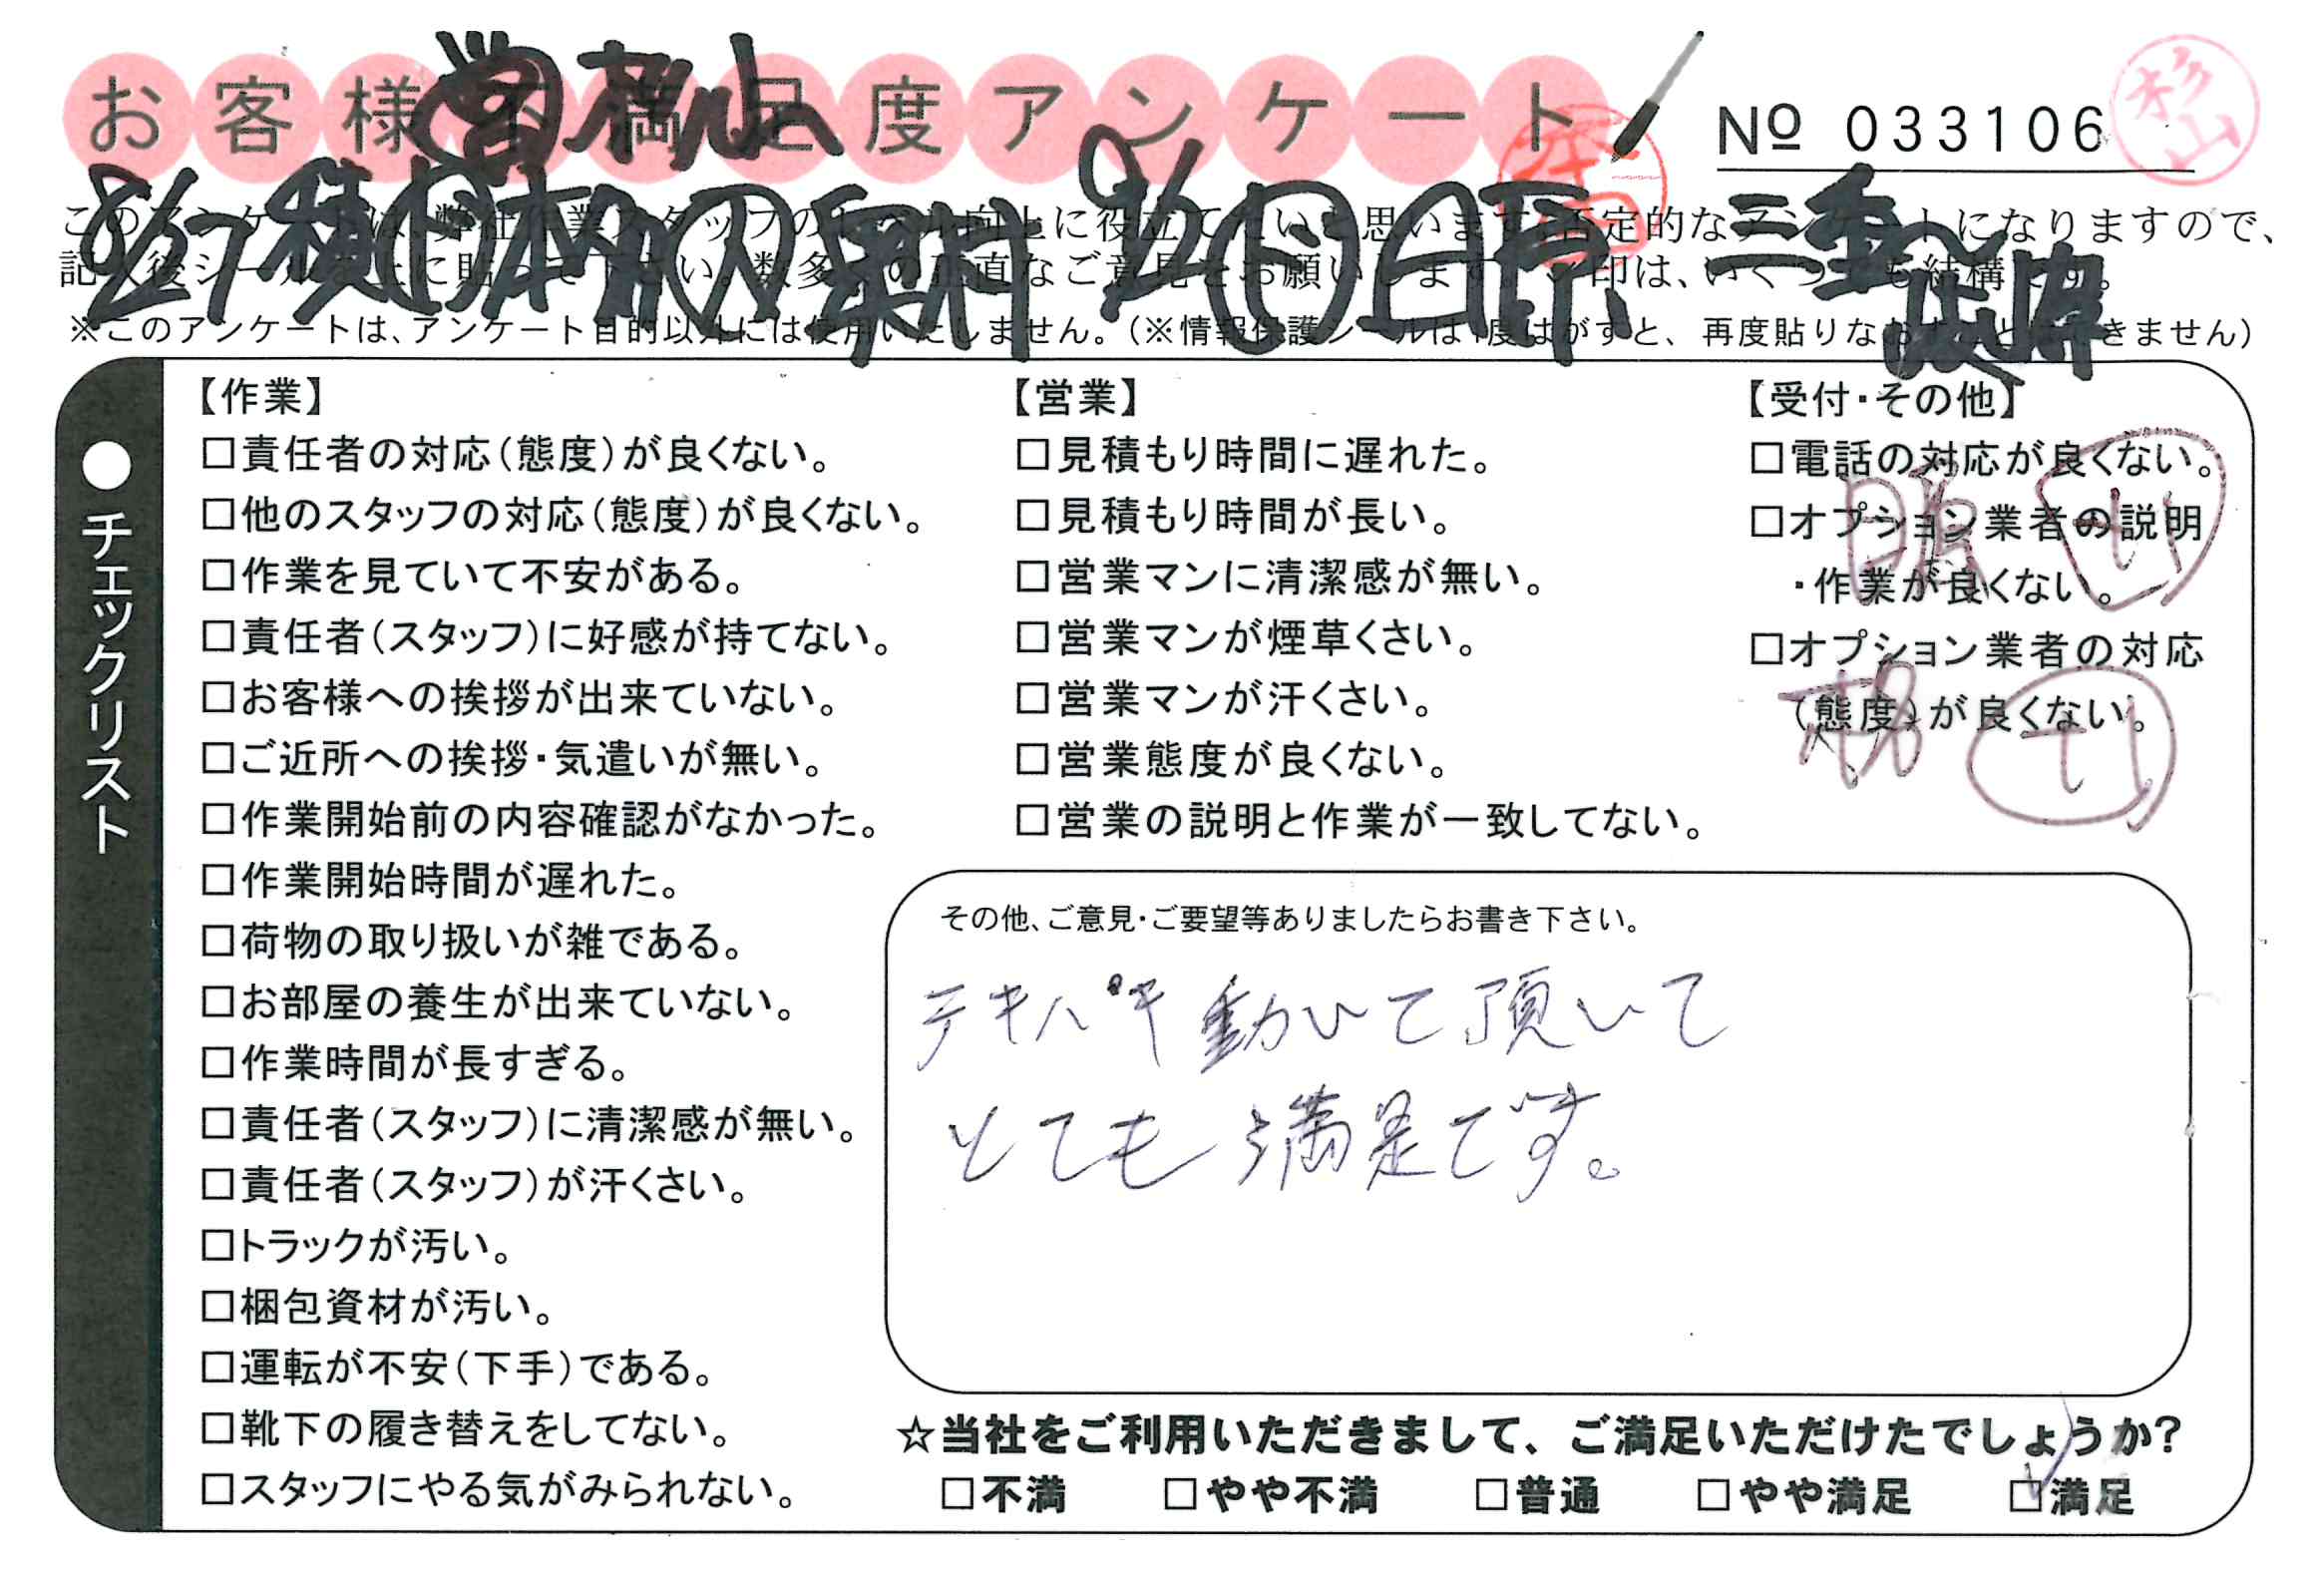 お客様不満足度アンケート
№ 033106
杉山
※このアンケートは、アンケート目的以外には使用いたしません。（※情報保護シールは1度はがすと、再度貼りなおすことはできません）
●チェックリスト
【作業】
□責任者の対応（態度）が良くない。
□他のスタッフの対応（態度）が良くない。
□作業を見ていて不安がある。
□責任者（スタッフ）に好感が持てない。
□お客様への挨拶が出来ていない。
□ご近所への挨拶・気遣いが無い。
□作業開始前の内容確認がなかった。
□作業開始時間が遅れた。
□荷物の取り扱いが雑である。
□お部屋の養生が出来ていない。
□作業時間が長すぎる。
□責任者（スタッフ）に清潔感が無い。
□責任者（スタッフ）が汗くさい。
□トラックが汚い。
□梱包資材が汚い。
□運転が不安（下手）である。
□靴下の履き替えをしてない。
□スタッフにやる気がみられない。
【営業】
□見積もり時間に遅れた。
□見積もり時間が長い。
□営業マンに清潔感が無い。
□営業マンが煙草くさい。
□営業マンが汗くさい。
□営業態度が良くない。
□営業の説明と作業が一致してない。
【受付・その他】
□電話の対応が良くない。
□オプション業者の説明
・作業が良くない。
□オプション業者の対応
（態度）が良くない。
その他、ご意見・ご要望等ありましたらお書き下さい。
テキパキ動いて頂いて
とても満足です。
☆当社をご利用いただきまして、ご満足いただけたでしょうか？
□不満 □やや不満 □普通 □やや満足 ☑満足